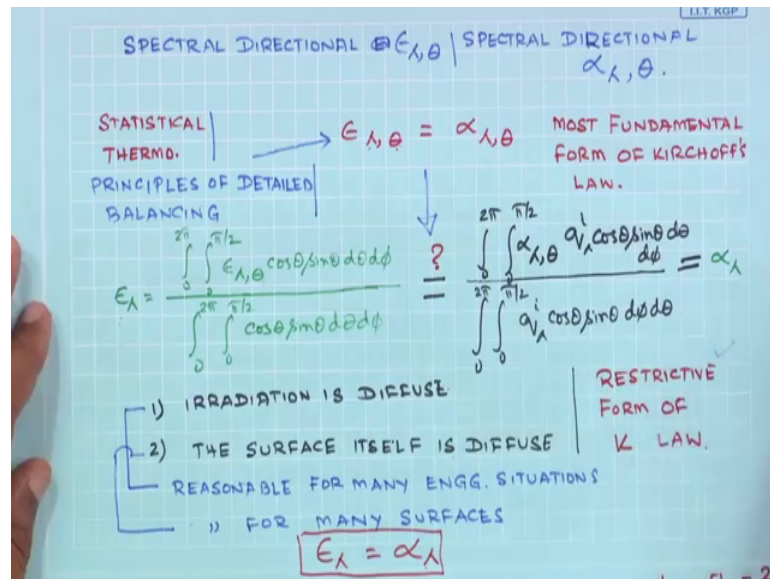 I.I.T. KGP
SPECTRAL DIRECTIONAL ϵλ,θ | SPECTRAL DIRECTIONAL
αλ,θ.
STATISTICAL
THERMO.
ϵλ,θ = αλ,θ
MOST FUNDAMENTAL
FORM OF KIRCHOFF'S
LAW.
PRINCIPLES OF DETAILED
BALANCING
ϵλ = ∫0^2π ∫0^π/2 ϵλ,θ cosθ sinθ dθ dφ / ∫0^2π ∫0^π/2 cosθ sinθ dθ dφ =? ∫0^2π ∫0^π/2 αλ,θ qλ^i cosθ sinθ dθ dφ / ∫0^2π ∫0^π/2 qλ^i cosθ sinθ dφ dθ = αλ
1) IRRADIATION IS DIFFUSE
2) THE SURFACE ITSELF IS DIFFUSE
RESTRICTIVE
FORM OF
K LAW.
REASONABLE FOR MANY ENGG. SITUATIONS
,, FOR MANY SURFACES
ϵλ = αλ